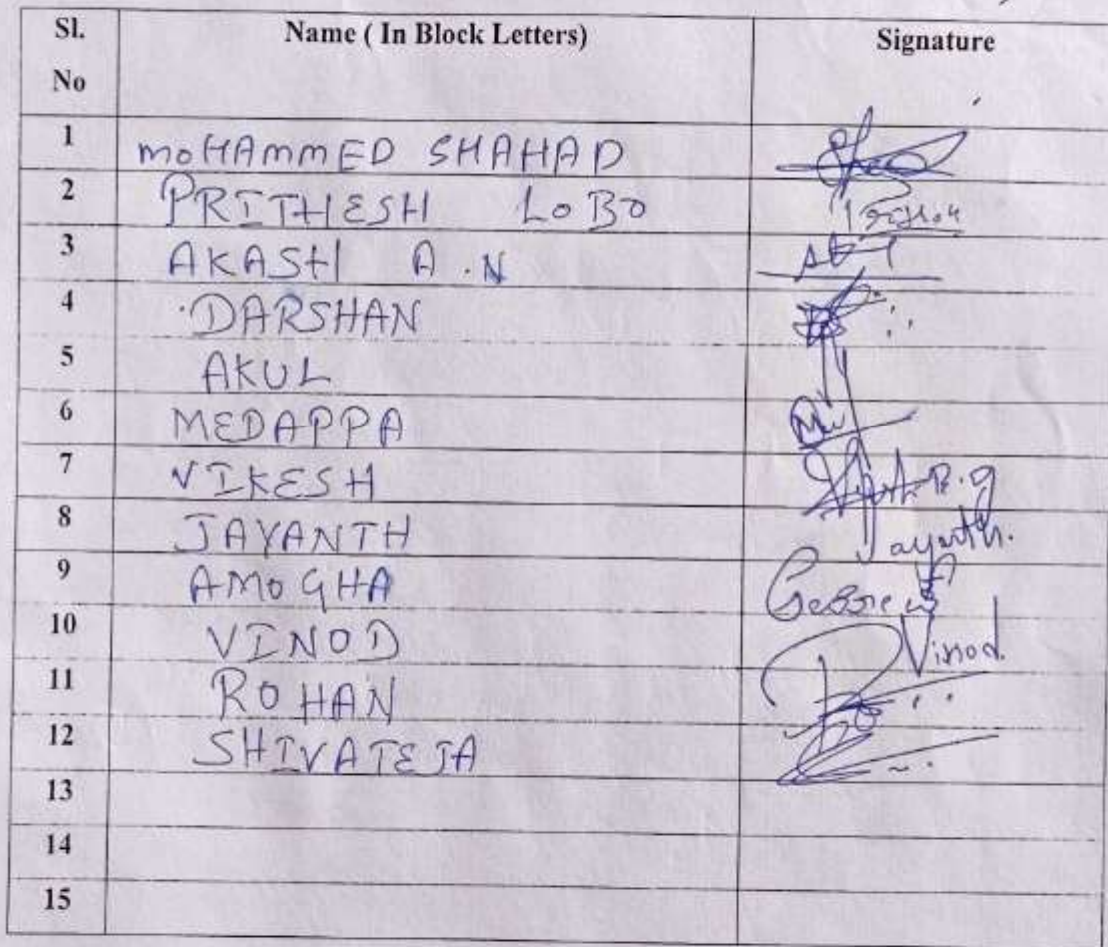 Sl. No Name ( In Block Letters) Signature
1 MOHAMMED SHAHAD
2 PRITHESH LOBO
3 AKASH A.N
4 DARSHAN
5 AKUL
6 MEDAPPA
7 VIKESH
8 JAYANTH Jayanth.
9 AMOGHA
10 VINOD Vinod.
11 ROHAN
12 SHIVATEJA
13
14
15